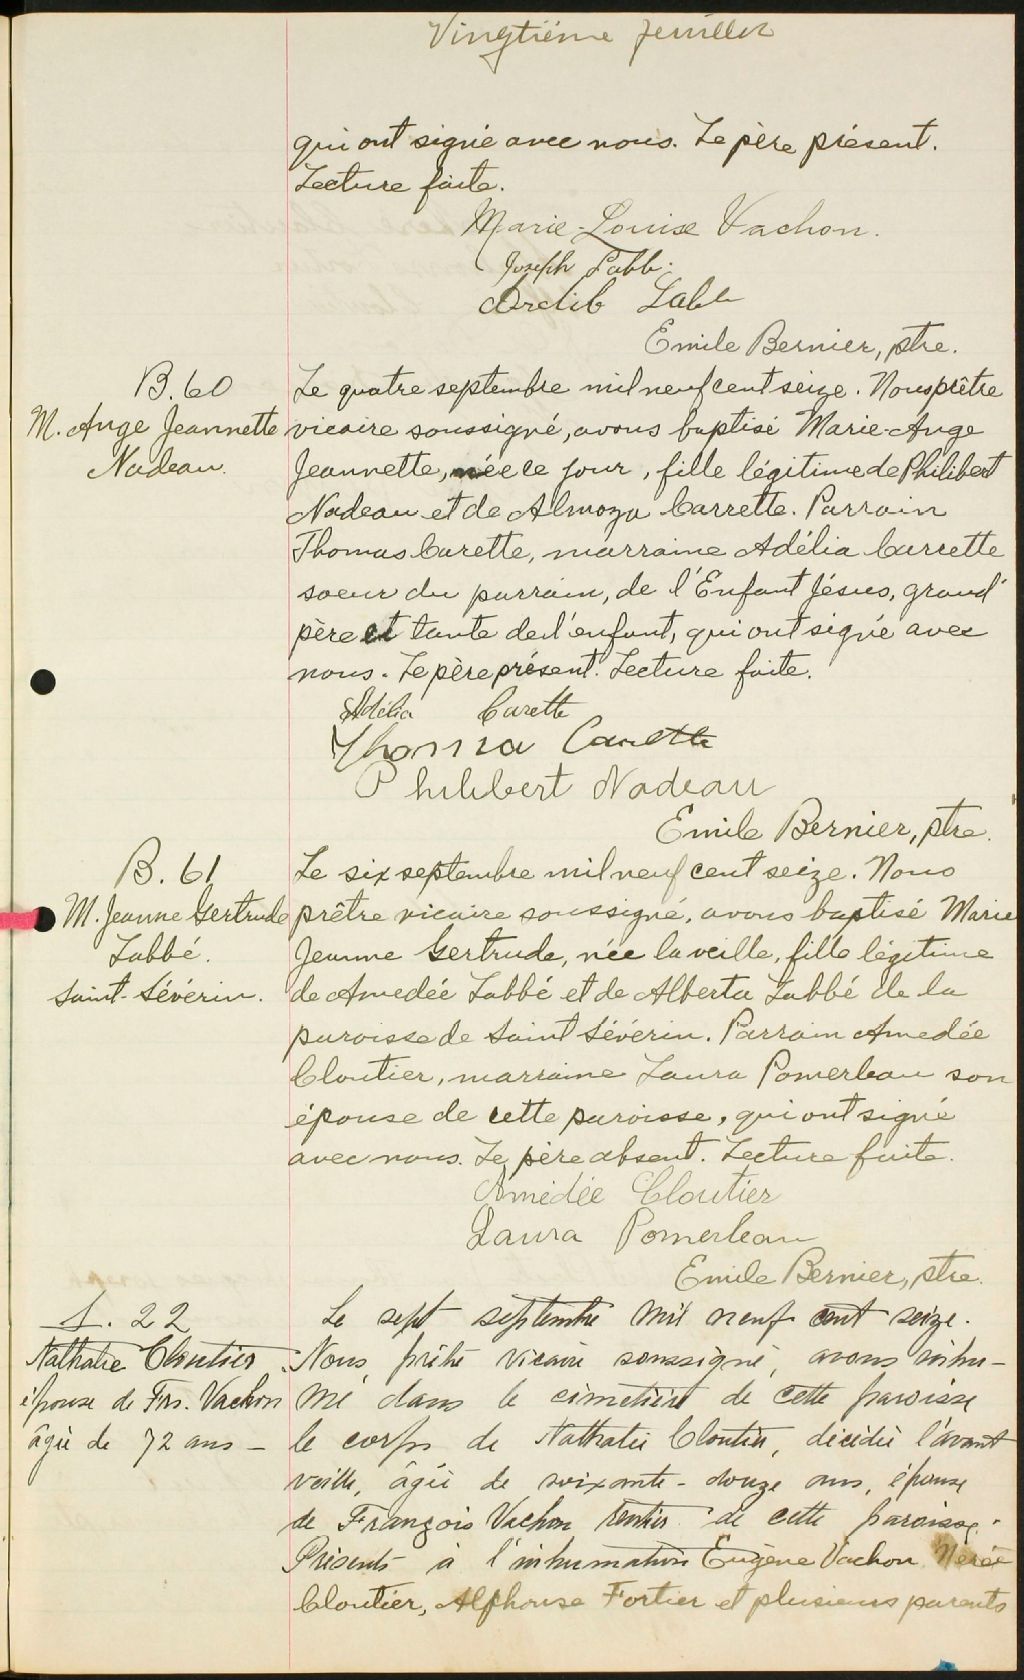 Vingtième feuillet
qui ont signé avec nous. Le père présent.
Lecture faite.
Marie-Louise Vachon.
Joseph Labbé
Ardib Labbé
Emile Bernier, ptre.
B. 60
M. Ange Jeannette
Nadeau.
Le quatre septembre mil neuf cent seize. Nous prêtre
vicaire soussigné, avons baptisé Marie-Ange
Jeannette, née ce jour, fille légitime de Philibert
Nadeau et de Almoza Carrette. Parrain
Thomas Carette, marraine Adélia Carrette
soeur du parrain, de l'Enfant Jésus, grand'
père et tante de l'enfant, qui ont signé avec
nous. Le père présent. Lecture faite.
Adélia Carette
Thomsa Carette
Philibert Nadeau
Emile Bernier, ptre.
B. 61
M. Jeanne Gertrude
Labbé.
Saint-Séverin.
Le six septembre mil neuf cent seize. Nous
prêtre vicaire soussigné, avons baptisé Marie
Jeanne Gertrude, née la veille, fille légitime
de Amedée Labbé et de Alberta Labbé de la
paroisse de Saint Séverin. Parrain Amedée
Cloutier, marraine Laura Pomerleau son
épouse de cette paroisse, qui ont signé
avec nous. Le père absent. Lecture faite.
Amédée Cloutier
Laura Pomerleau
Emile Bernier, ptre.
S. 22
Nathalie Cloutier
épouse de Frs. Vachon
âgée de 72 ans –
Le sept septembre mil neuf cent seize.
Nous, prêtre vicaire soussigné, avons inhu-
mé dans le cimetière de cette paroisse
le corps de Nathalie Cloutier, décédée l'avant
veille, âgée de soixante-douze ans, épouse
de François Vachon rentier de cette paroisse.
Présents à l'inhumation Eugène Vachon Nérée
Cloutier, Alphonse Fortier et plusieurs parents